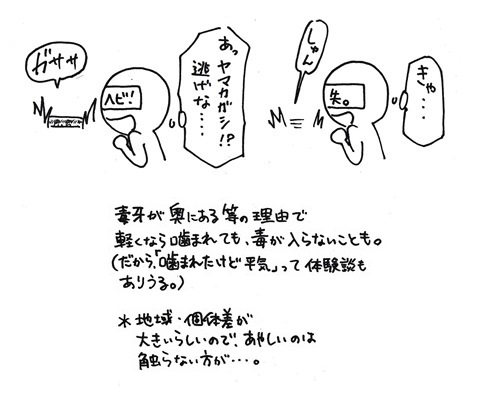 ガササ
ヘビ！
あっ
ヤマカガシ!?
逃げな‥‥
しゃん
失。
きゃ‥‥
毒牙が奥にある等の理由で
軽くなら噛まれても、毒が入らないことも。
(だから、「噛まれたけど平気」って体験談も
ありうる。)
＊地域・個体差が
大きいらしいので、あやしいのは
触らない方が・・・。